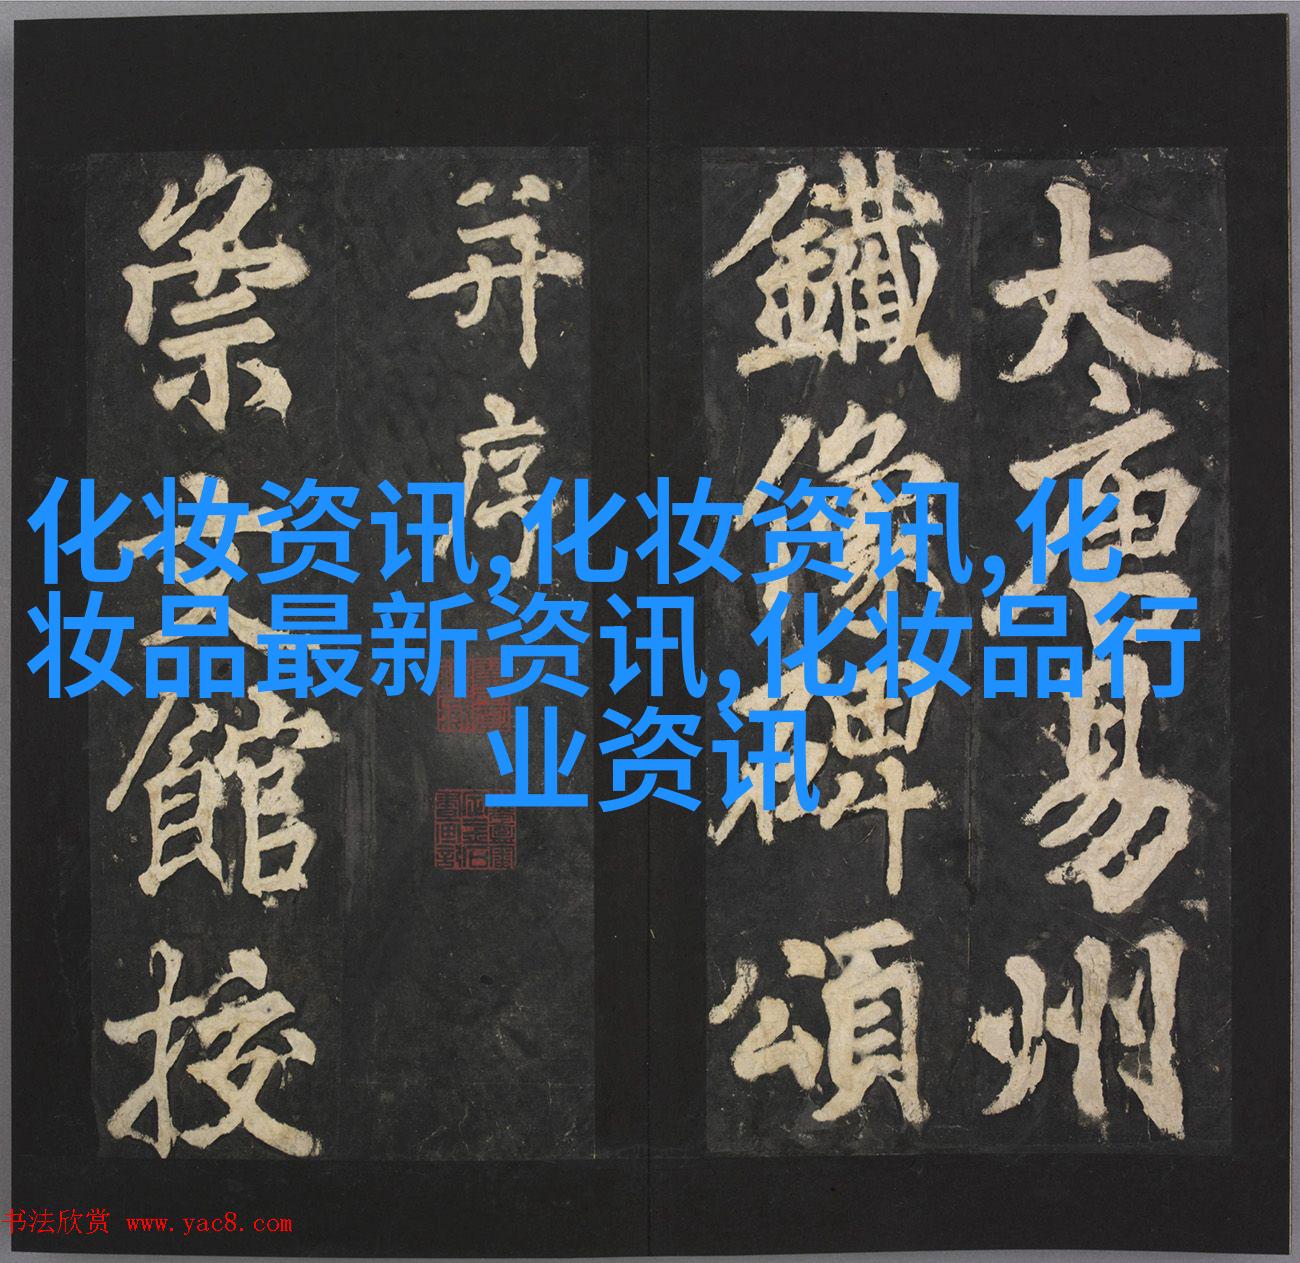 大唐易州
鐵像碑頌
并序
崇文館挍
化妆资讯,化妆资讯,化
妆品最新资讯,化妆品行
业资讯
书法欣赏 www.yac8.com